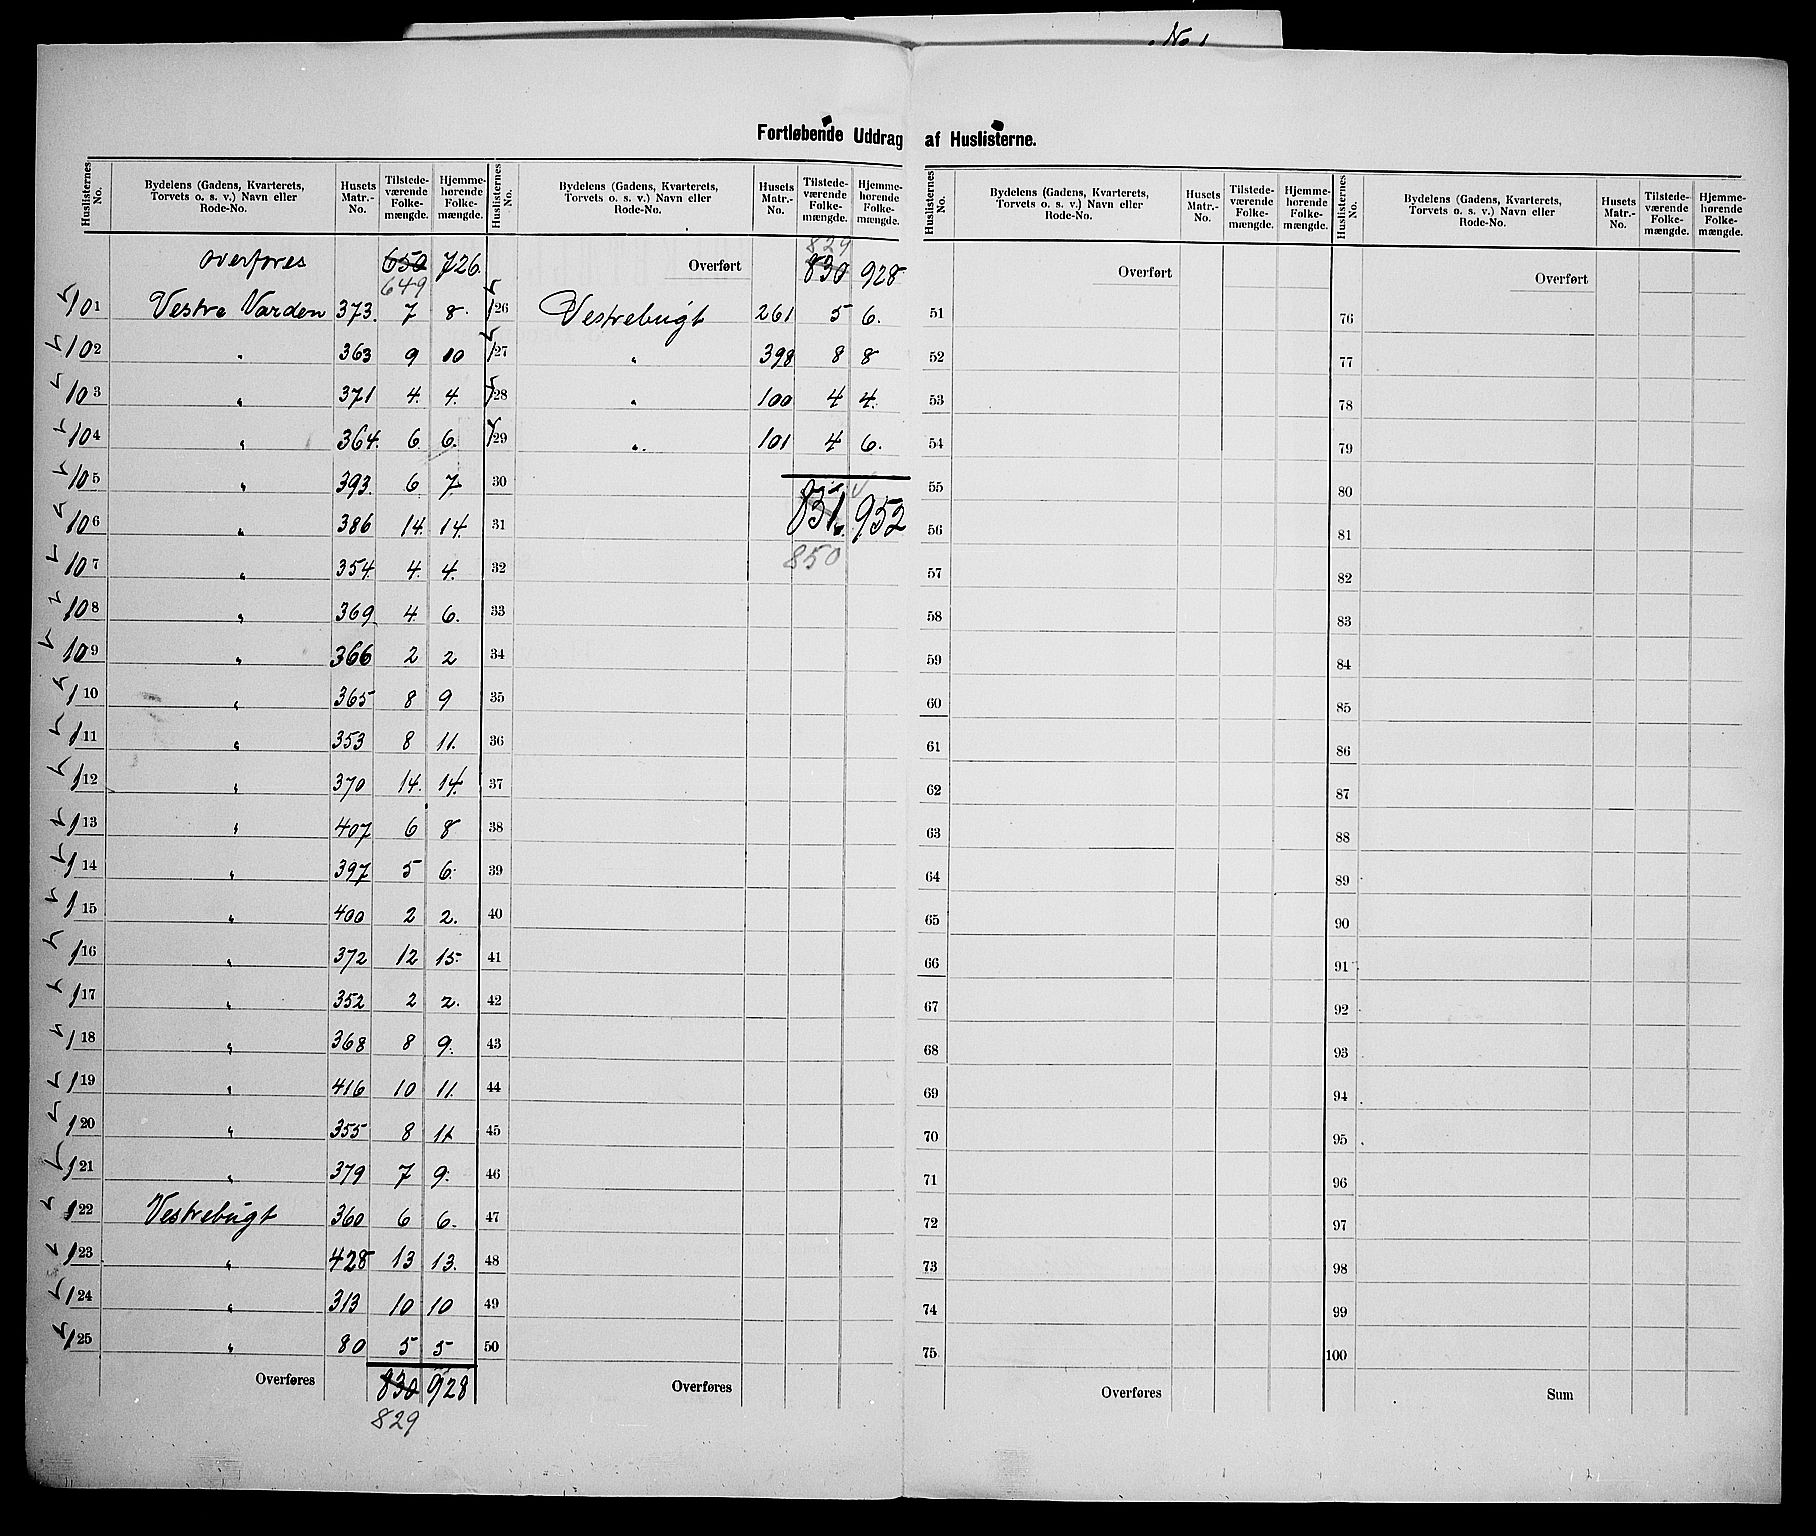 No 1
Fortløbende Uddrag af Huslisterne.
Huslisternes No. | Bydelens (Gadens, Kvarterets, Torvets o. s. v.) Navn eller Rode-No. | Husets Matr.-No. | Tilstedeværende Folkemængde. | Hjemmehørende Folkemængde.
overføres 650 726
649
101 Vestre Varden 373. 7 8
102 " 363 9 10
103 " 371 4. 4.
104 " 364. 6. 6.
105 " 393. 6. 7.
106 " 386 14. 14.
107 " 354. 4. 4.
108 " 369 4. 6.
109 " 366 2 2
110 " 365 8 9
111 " 353 8 11.
112 " 370 14. 14.
113 " 407 6 8
114 " 397 5 6.
115 " 400 2 2.
116 " 372 12 15
117 " 352 2 2.
118 " 368 8 9.
119 " 416 10 11.
120 " 355 8 11
121 " 379 7 9.
122 Vestrebugt 360 6 6.
123 " 428 13 13.
124 " 313 10 10
125 " 80 5 5
Overføres 830 928
829
Huslisternes No. | Bydelens (Gadens, Kvarterets, Torvets o. s. v.) Navn eller Rode-No. | Husets Matr.-No. | Tilstedeværende Folkemængde. | Hjemmehørende Folkemængde.
829
Overført 830 928
126 Vestrebugt 261 5 6.
127 " 398 8 8
128 " 100 4 4.
129 " 101 4 6.
30 952
31
32 850
33
34
35
36
37
38
39
40
41
42
43
44
45
46
47
48
49
50
Overføres
Huslisternes No. | Bydelens (Gadens, Kvarterets, Torvets o. s. v.) Navn eller Rode-No. | Husets Matr.-No. | Tilstedeværende Folkemængde. | Hjemmehørende Folkemængde.
Overført
51
52
53
54
55
56
57
58
59
60
61
62
63
64
65
66
67
68
69
70
71
72
73
74
75
Overføres
Huslisternes No. | Bydelens (Gadens, Kvarterets, Torvets o. s. v.) Navn eller Rode-No. | Husets Matr.-No. | Tilstedeværende Folkemængde. | Hjemmehørende Folkemængde.
Overført
76
77
78
79
80
81
82
83
84
85
86
87
88
89
90
91
92
93
94
95
96
97
98
99
100
Sum